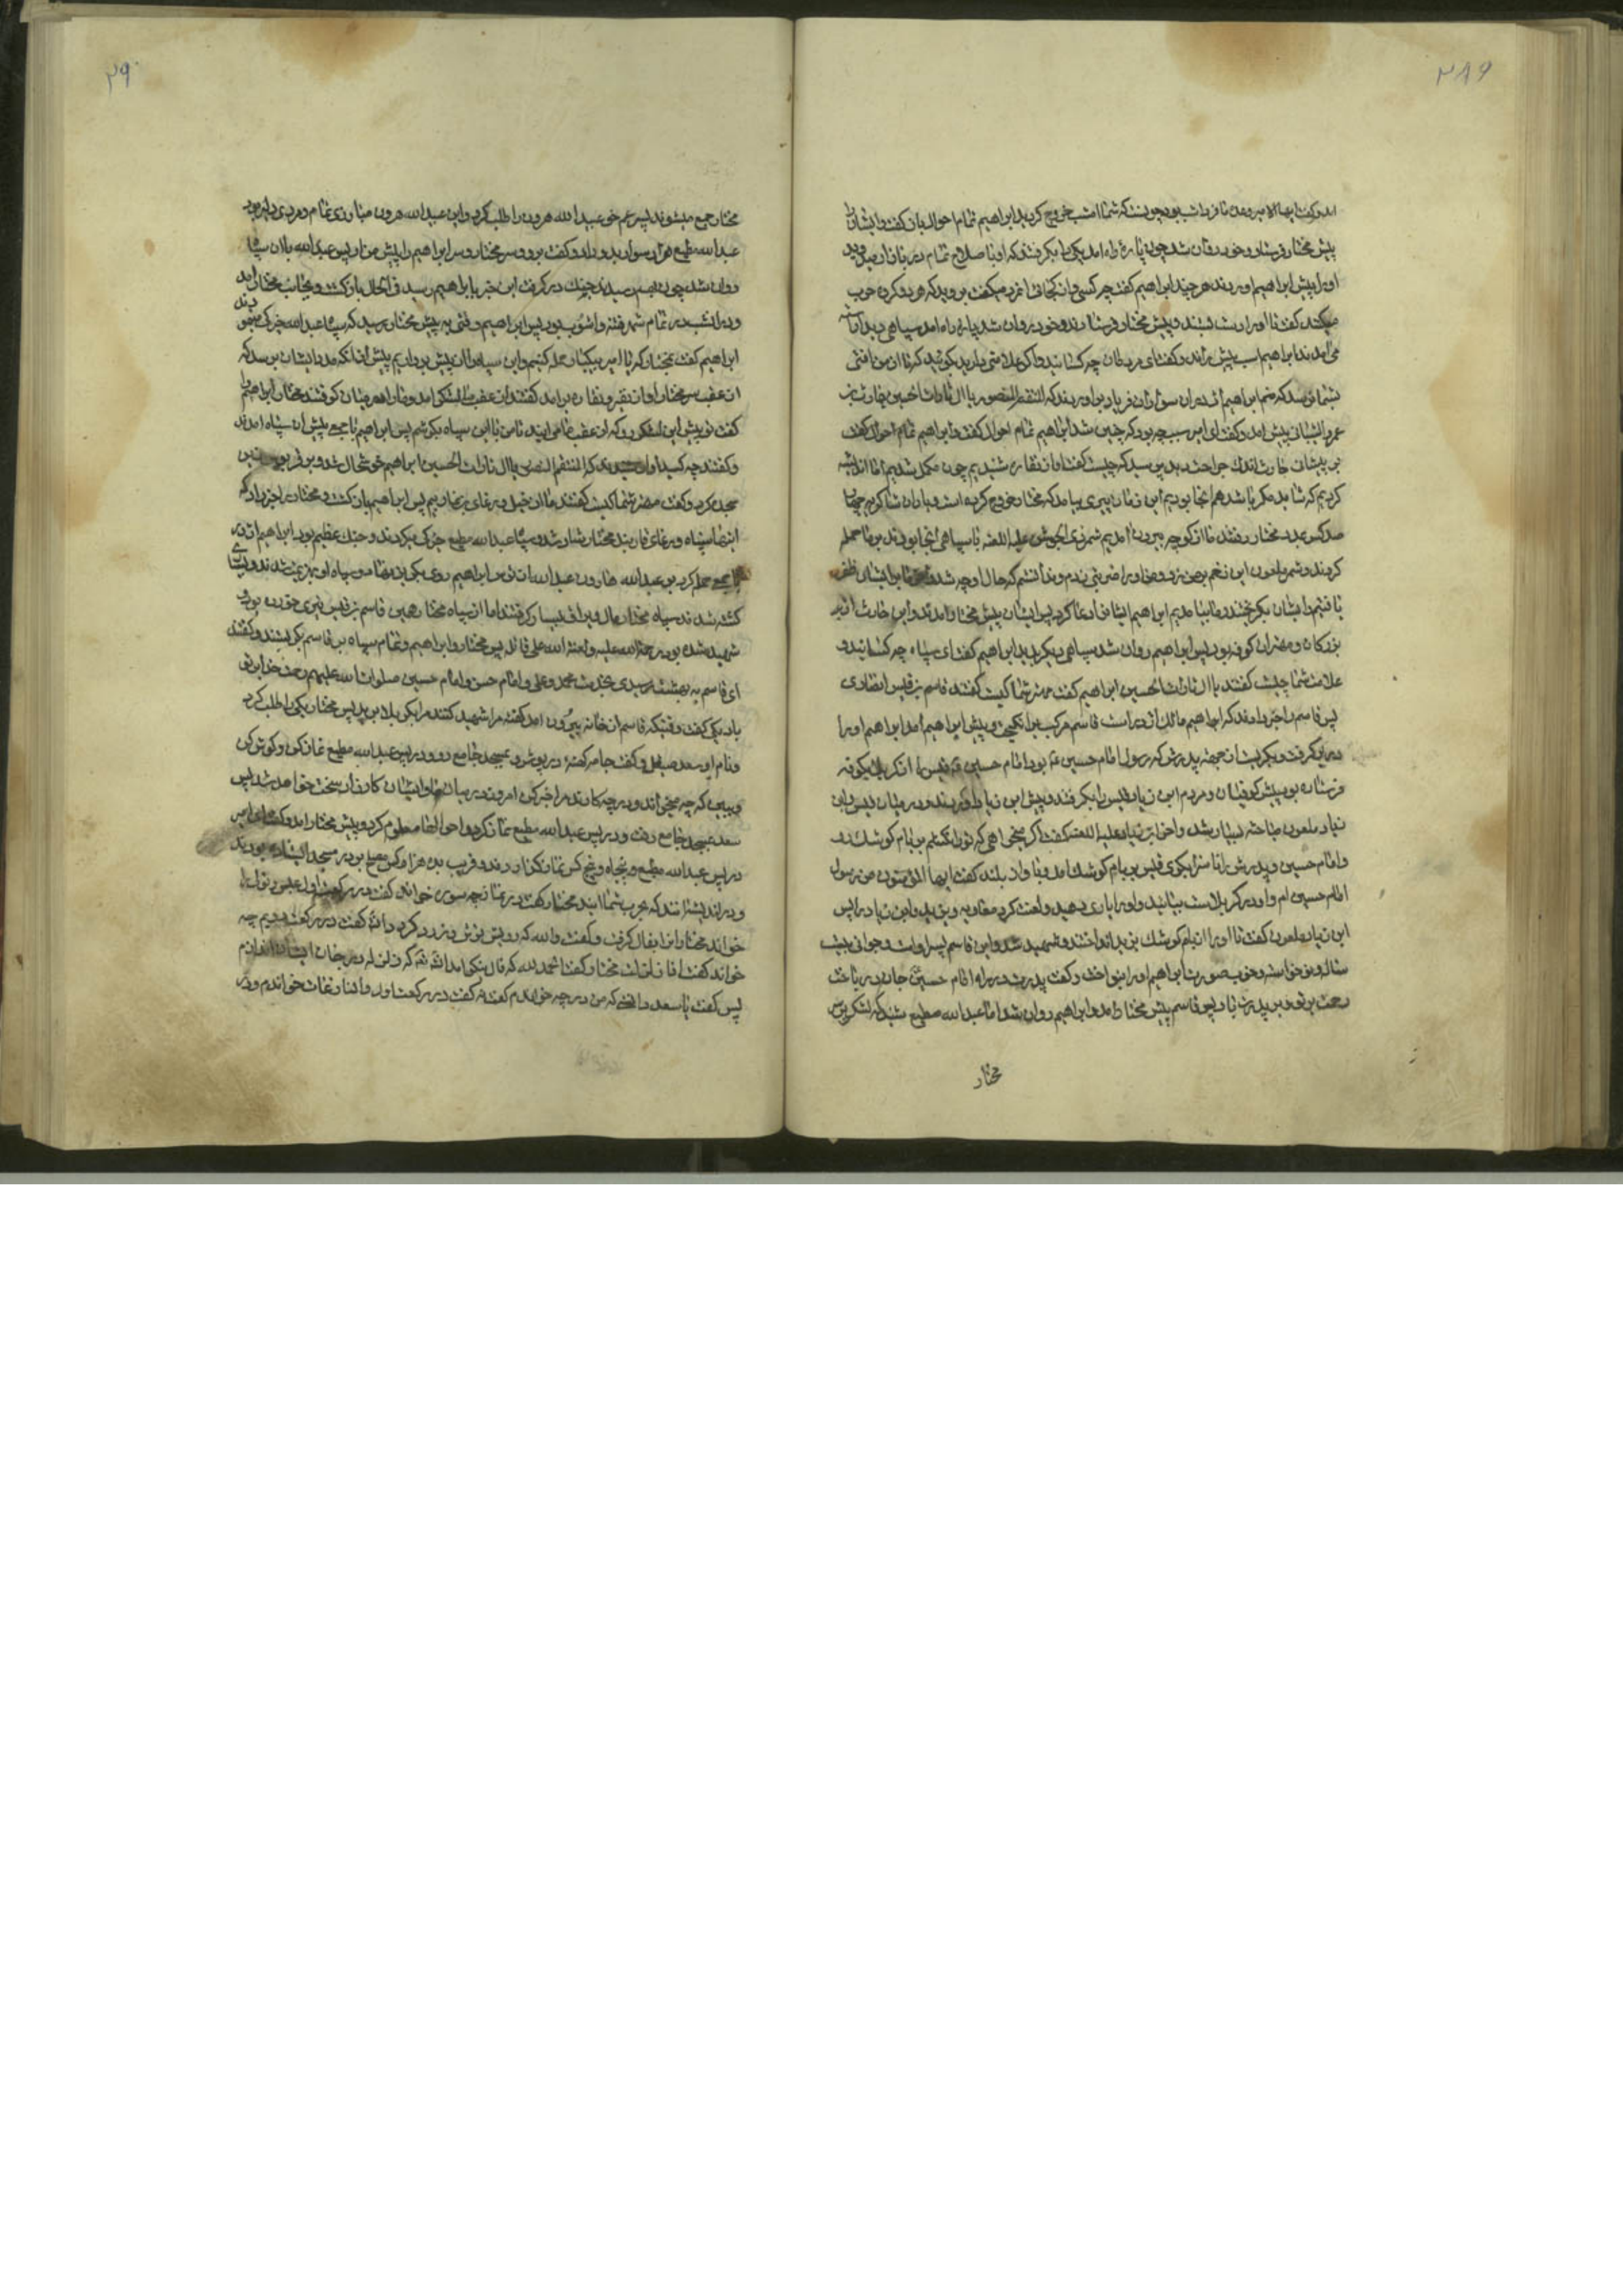 ۲۸۹
امد و گفت ایها الامیر وعده ما فردا شب بود چونست که شما امشب خروج کردید ابراهیم تمام احوال بان گفت و ایشان را
پیش مختار فرستاد و خود روان شد چون پارهٔ راه امد یکی را بگرفتند که او با صلاح تمام در بازار میدوید
او را پیش ابراهیم اوردند هر چند ابراهیم گفت چه کسی و از کجائی انمرد میگفت بروید که هر دو کرده خوب
میکند گفت تا او را دست بستند و پیش مختار فرستادند و خود روان شد پاره راه امد سپاهی دید اراسته
می امدند ابراهیم اسب پیش راند و گفت ای مردمان چه کسانید و اگر علامتی دارید بگوئید که تا از من افتی
بشما نرسد که منم ابراهیم اژدر ان سواران فریاد بر اوردند که المنتقم المنصور یا ال ثارات الحسین حارث بن
عمرو الشیبانی پیش امد و گفت ای امیر سبب چه بود که چنین شد ابراهیم تمام احوال گفت و ابراهیم تمام احوال گفت
بر پیشانی حارث اندک جراحت دید پرسید که چیست گفت اواز نقاره شنیدیم چون مکمل شدیم اما اندیشه
کردیم که شاید مکر باشد هم انجا بودیم این زمان پیری بیامد که مختار خروج کرده است و یاران شاکر پرچهار
صد کس بمدد مختار رفتند ما از کوچه بیرون امدیم شمر ذی الجوشن علیه اللعنه با سپاهی انجا بودند بر ما حمله
کردند و شمر ملعون این زخم بر من زد و من او را ضربتی زدم و ندانستم که حال او چه شد ما بر ایشان ظفر
یافتیم و ایشان بگریختند ما بینا مدیم ابراهیم ایشانرا دعا کرد پس ایشان پیش مختار امدند و این حارث از
بزرکان و مهتران کوفه بود پس ابراهیم روان شد سپاهی دیگر بدید ابراهیم گفت ای سپاه چه کسانید و
علامت شما چیست گفتند یا ال ثارات الحسین ابراهیم گفت مهتر شما کیست گفتند قاسم بن قیس انصاری
پس قاسم را خبر دادند که ابراهیم مالک اژدر است قاسم مرکب برانگیخت و پیش ابراهیم امد ابراهیم او را
در بر گرفت و بگریست از جهة پدرش که رسول امام حسین بود امام حسین قیس را از کربلا بکوفه
فرستاده بود پیش کوفیان و مردم ابن زیاد قیس را بگرفتند و پیش ابن زیاد اوردند و در میان قیس و ابن
زیاد ملعون مباحثه بسیار شد و اخر ابن زیاد علیه اللعنه گفت اگر میخواهی که تو را نکشم بر بام کوشک رو
و امام حسین و پدرش را ناسزا بگوی قیس بر بام کوشک امد و باواز بلند گفت ایها المؤمنون من رسول
امام حسین ام و او در کربلاست بیائید و او را یاری دهید و لعنت کرد معاویه و یزید و ابن زیاد را پس
ابن زیاد ملعون گفت تا او را از بام کوشک بزیر انداختند و شهید شد و این قاسم پسر اوست و جوانی بیست
ساله و نو خواسته و خوب صورت ابراهیم او را بنواخت و گفت پدرت در راه امام حسین جان در باخت
رحمت بر تو و بر پدرت باد پس قاسم پیش مختار امد و ابراهیم روان شد اما عبدالله مطیع شنید که لشکر بر سر
مختار
۲۹۰
مختار جمع میشوند پسر عم خود عبیدالله هرون را طلب کرد و این عبیدالله هرون مبارزی تمام و مردی دلیر بود
عبدالله مطیع هزار سوار بدو داد و گفت برو و سر مختار و سر ابراهیم را پیش من ار پس عبدالله با ان سپاه
روان شد چون بهم رسیدند جنک در گرفت این خبر با ابراهیم رسید فی الحال بازگشت و بجانب مختار امد
و در انشب در تمام شهر فتنه و اشوب بود پس ابراهیم وقتی به پیش مختار رسید که سپاه عبدالله جنک میجو
یند
ابراهیم گفت بمختار که یا امیر بیکبار حمله کنیم و این سپاه را از پیش برداریم پیش از انکه مدد بایشان برسد که
از عقب سر مختار اواز نقیر و نقاره برامد گفتند از عقب ما لشکر امد و مارا در میان گرفتند مختار ابراهیم را
گفت تو پیش این لشکر رو که از عقب ما می ایند تا من با این سپاه بکوشم پس ابراهیم با جمع پیش ان سپاه امدند
و گفتند چه کسید اواز شنیدند که المنتقم المنصور یا ال ثارات الحسین ابراهیم خوشحال شد و بر قربوس زین
سجده کرد و گفت مهتر شما کیست گفتند ما از خیل ورغای بن عازبیم پس ابراهیم بازگشت و مختار را خبر داد که
اینها سپاه ورغای عازبند مختار شاد شد و سپاه عبدالله مطیع جنک میکردند و جنک عظیم بود ابراهیم از در
با جمع حمله کرد بر عبدالله هارون عبدالله تاب نیاورد ابراهیم روی بگریز نهاد و سپاه او بهزیمت شدند و بسیاری
کشته شدند سپاه مختار مال و یراق بسیار گرفتند اما از سپاه مختار همین قاسم بن قیس تیری خورده بود و
شهید شده بود رحمة الله علیه و لعنة الله علی قاتله پس مختار و ابراهیم و تمام سپاه بر قاسم بگریستند و گفتند
ای قاسم به بهشت رسیدی بخدمت محمد و علی و امام حسن و امام حسین صلوات الله علیهم رحمت خدا بر تو
باد یکی گفت وقتیکه قاسم از خانه بیرون امد گفت مرا شهید کنند مرا بکربلا برید پس مختار یکی را طلب کرد
و نام او سعد صیقل و گفت جامه کهنه در پوش و بمسجد جامع رو و در پس عبدالله مطیع نماز کن و گوش کن
و ببین که چه میخواند و در چه کارند مرا خبر کن امروز در میان ما و ایشان کارزار سخت خواهد شد پس
سعد بمسجد جامع رفت و در پس عبدالله مطیع نماز کرد و احوالها معلوم کرد و پیش مختار امد و گفت ای امیر
در پس عبدالله مطیع و پنجاه و پنج کس نماز نگذاردند و قریب ده هزار کس مصلح بر در مسجد ایستاده بودند
و در اندیشه اند که بحرب شما ایند مختار گفت در نماز چه سوره خواند گفت در رکعت اول عبس و تولی
خواند مختار انرا بفال گرفت و گفت والله که رویش ترش و زرد کردد انگه گفت در رکعت دویم چه
خواند گفت اذا زلزلت مختار گفت الحمدلله که فال نیکو امد انشاءالله که زلزله در جان ایشان اندازم
پس گفت یا سعد دانی که من در چه خواندم گفت نه گفت در رکعت اول والنازعات خواندم و در